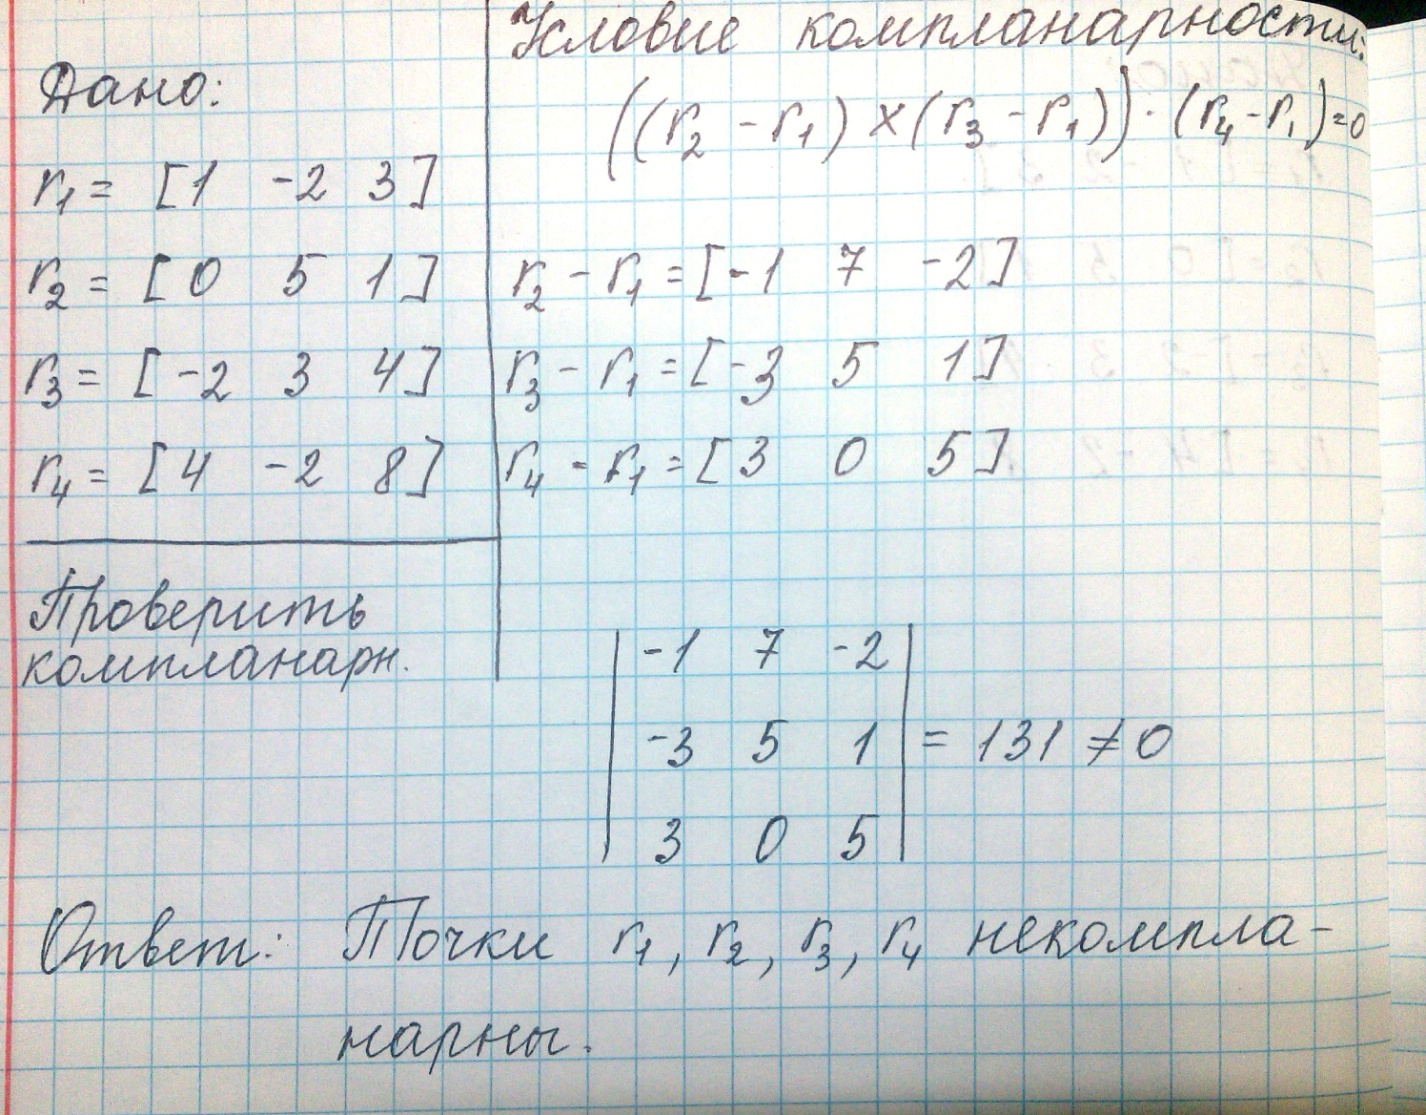 Дано:
r₁ = [1 -2 3]
r₂ = [0 5 1]
r₃ = [-2 3 4]
r₄ = [4 -2 8]
Проверить
компланарн.
Условие компланарности:
((r₂ - r₁) × (r₃ - r₁)) · (r₄ - r₁) = 0
r₂ - r₁ = [-1 7 -2]
r₃ - r₁ = [-3 5 1]
r₄ - r₁ = [3 0 5]
| -1 7 -2 |
| -3 5 1 | = 131 ≠ 0
| 3 0 5 |
Ответ: Точки r₁, r₂, r₃, r₄ некомпла-
нарны.